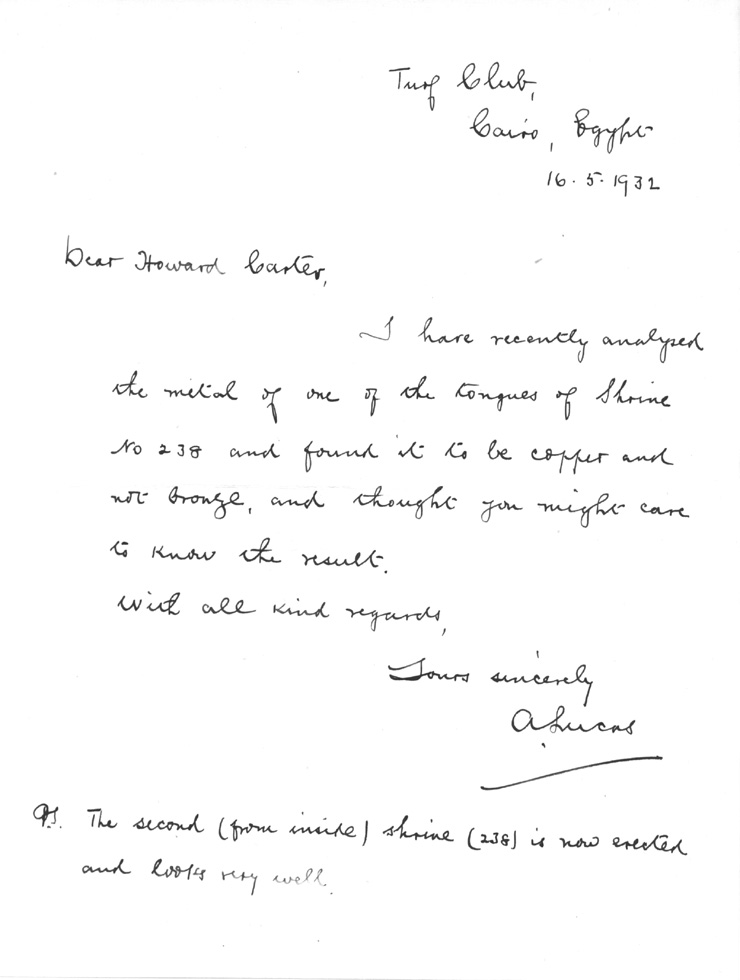 Turf Club,
Cairo, Egypt
16.5.1932
Dear Howard Carter,
I have recently analysed
the metal of one of the tongues of Shrine
No 238 and found it to be copper and
not bronze, and thought you might care
to know the result.
With all kind regards,
Yours sincerely
A. Lucas
PS. The second (from inside) shrine (238) is now erected
and looks very well.